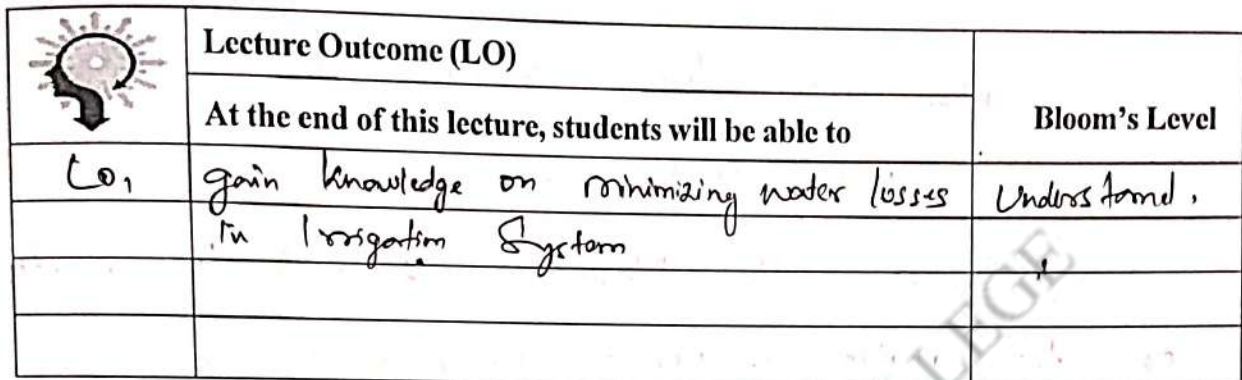 Lecture Outcome (LO)
At the end of this lecture, students will be able to
Bloom's Level
LO1 gain knowledge on minimizing water losses Understand.
in Irrigation System
LEGE